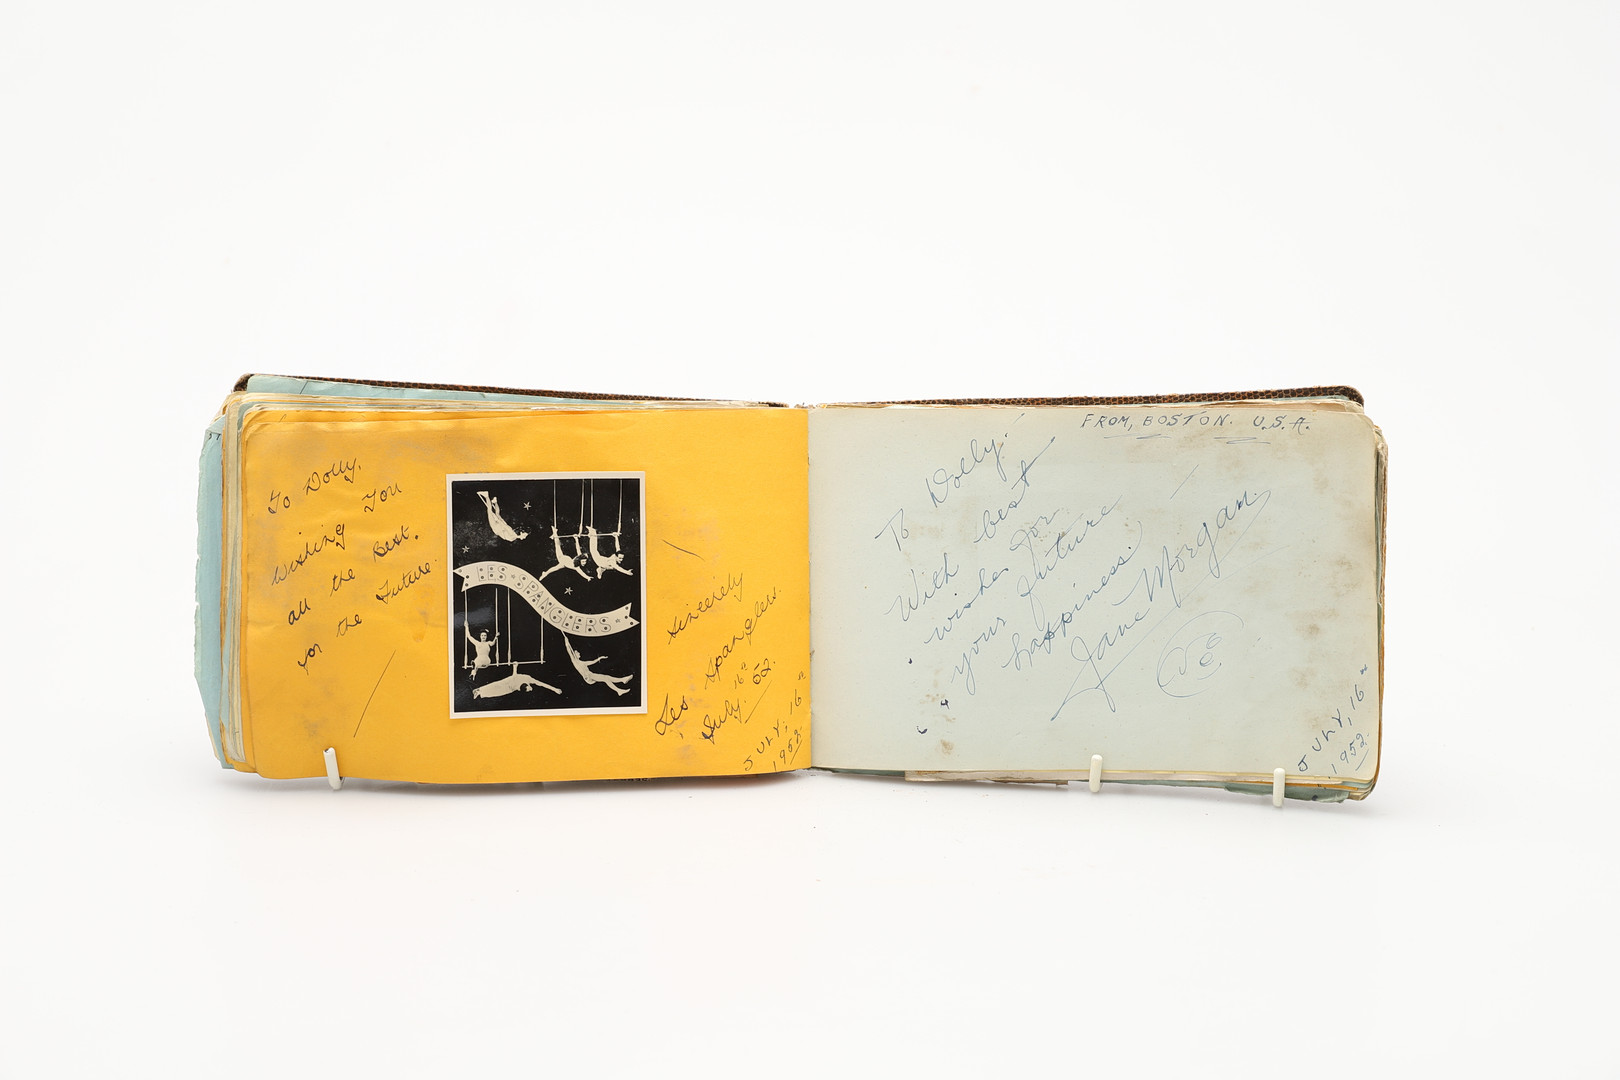 To Dolly,
Wishing You
all the Best.
for the Future.
LES SPANGLERS
Sincerely
Les Spanglers.
July. 16th 52.
JULY, 16th
1952.
FROM, BOSTON. U.S.A.
To Dolly!
With best
wishes for
your future
happiness.
Jane Morgan.
JULY, 16th
1952.